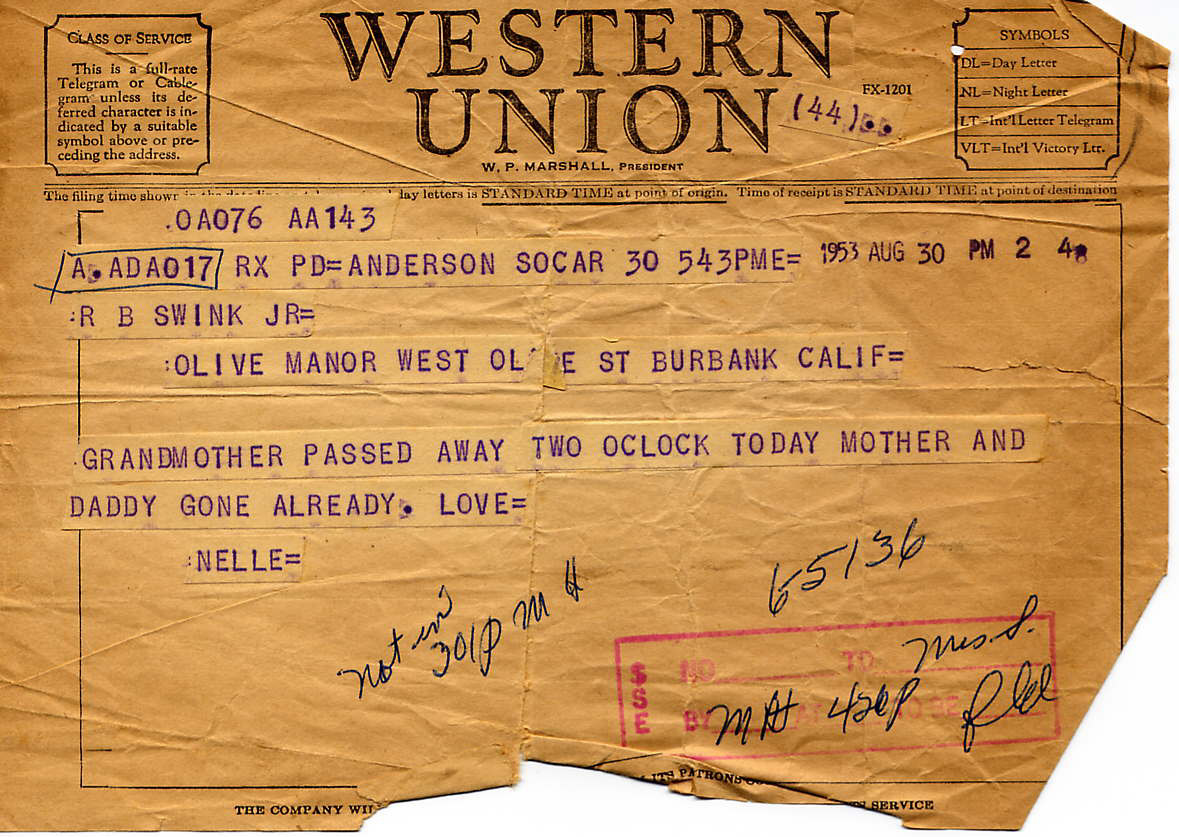 CLASS OF SERVICE
This is a full-rate
Telegram or Cable-
gram unless its de-
ferred character is in-
dicated by a suitable
symbol above or pre-
ceding the address.
WESTERN
UNION
W. P. MARSHALL, PRESIDENT
FX-1201
(44)
SYMBOLS
DL=Day Letter
NL=Night Letter
LT=Int'l Letter Telegram
VLT=Int'l Victory Ltr.
The filing time shown lay letters is STANDARD TIME at point of origin. Time of receipt is STANDARD TIME at point of destination
.OA076 AA143
A. ADA017 RX PD=ANDERSON SOCAR 30 543PME= 1953 AUG 30 PM 2 4
:R B SWINK JR=
:OLIVE MANOR WEST OL E ST BURBANK CALIF=
GRANDMOTHER PASSED AWAY TWO OCLOCK TODAY MOTHER AND
DADDY GONE ALREADY. LOVE=
:NELLE=
not in
301P MH
65136
SSE
NO TO Mrs. S.
BY MH AT 420P TO BE
ITS PATRONS
THE COMPANY WIL SERVICE